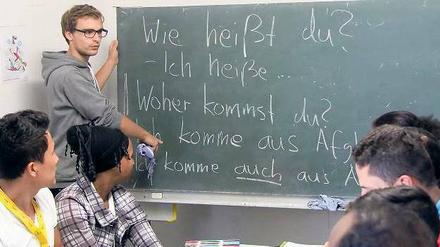 Wie heißt du?
- Ich heiße ...
Woher kommst du?
komme aus
komme auch aus